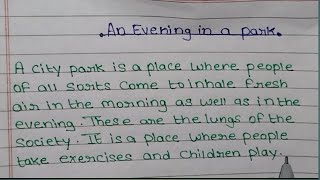 .An Evening in a park.
A city park is a place where people
of all sorts come to inhale fresh
air in the morning as well as in the
evening. These are the lungs of the
society. It is a place where people
take exercises and children play.